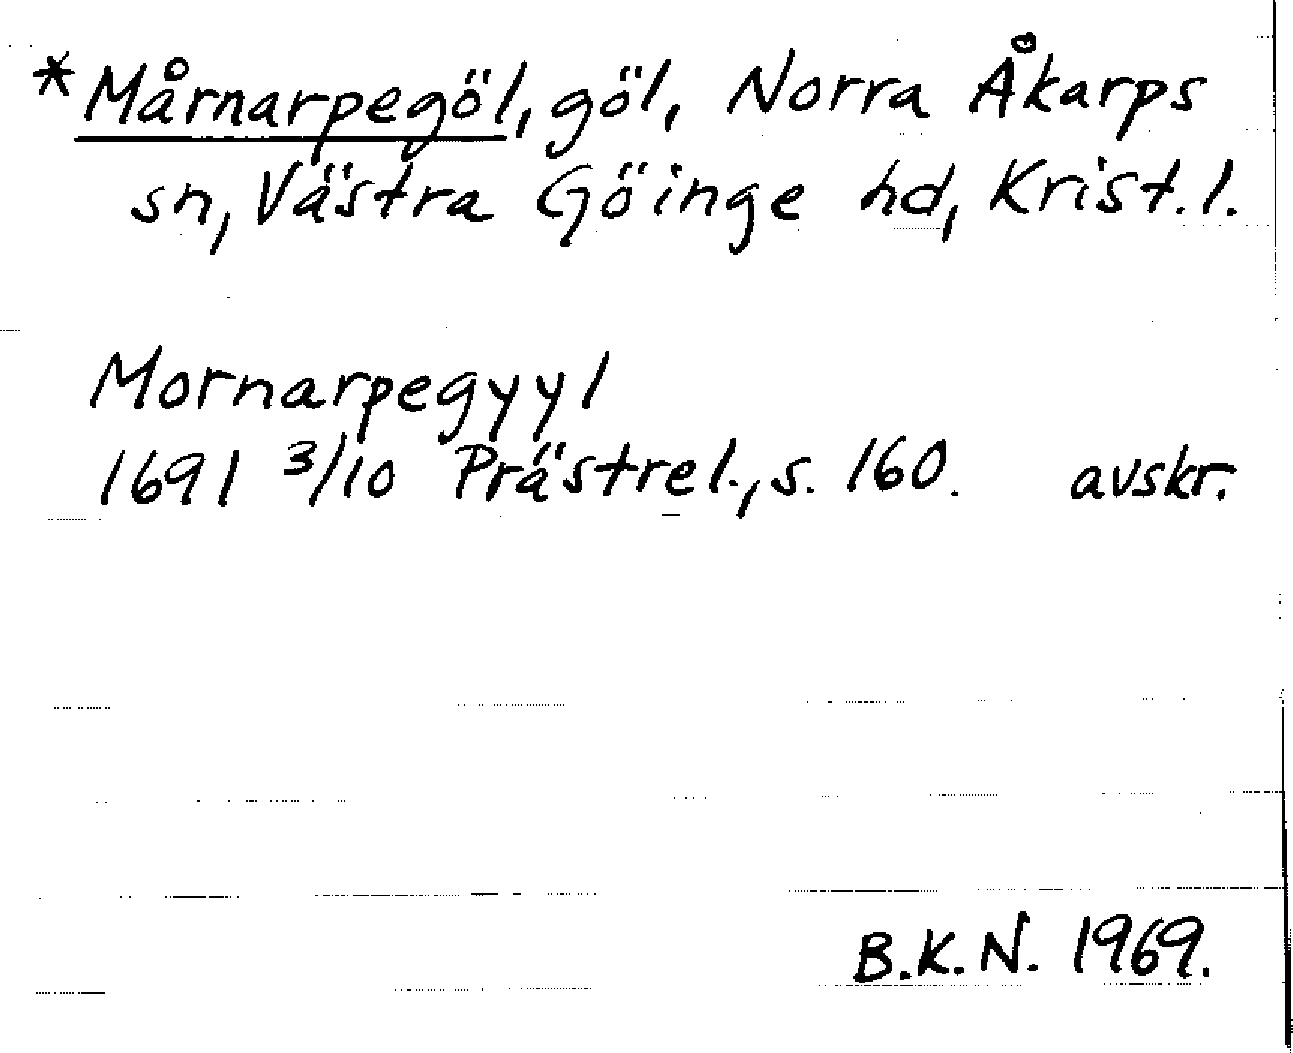 *Mårnarpegöl, göl, Norra Åkarps
sn, Västra Göinge hd, Krist. l.
Mornarpegyyl
1691 3/10 Prästrel., s. 160. avskr.
B.K.N. 1969.